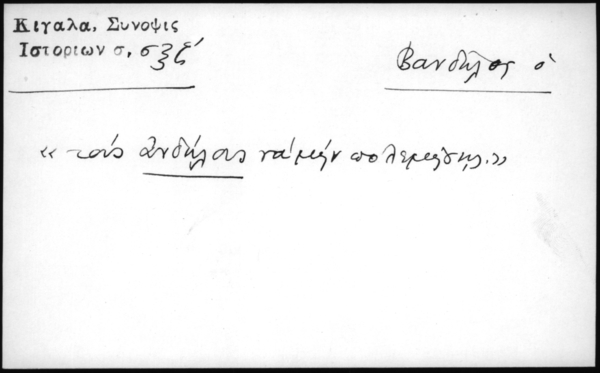 Κιγαλα, Συνοψις
Ιστοριων σ, σξζ́
Βανδῆλος ὁ
« τοὺς Ἀνδήλους νὰ μὴν πολεμήσῃς. »